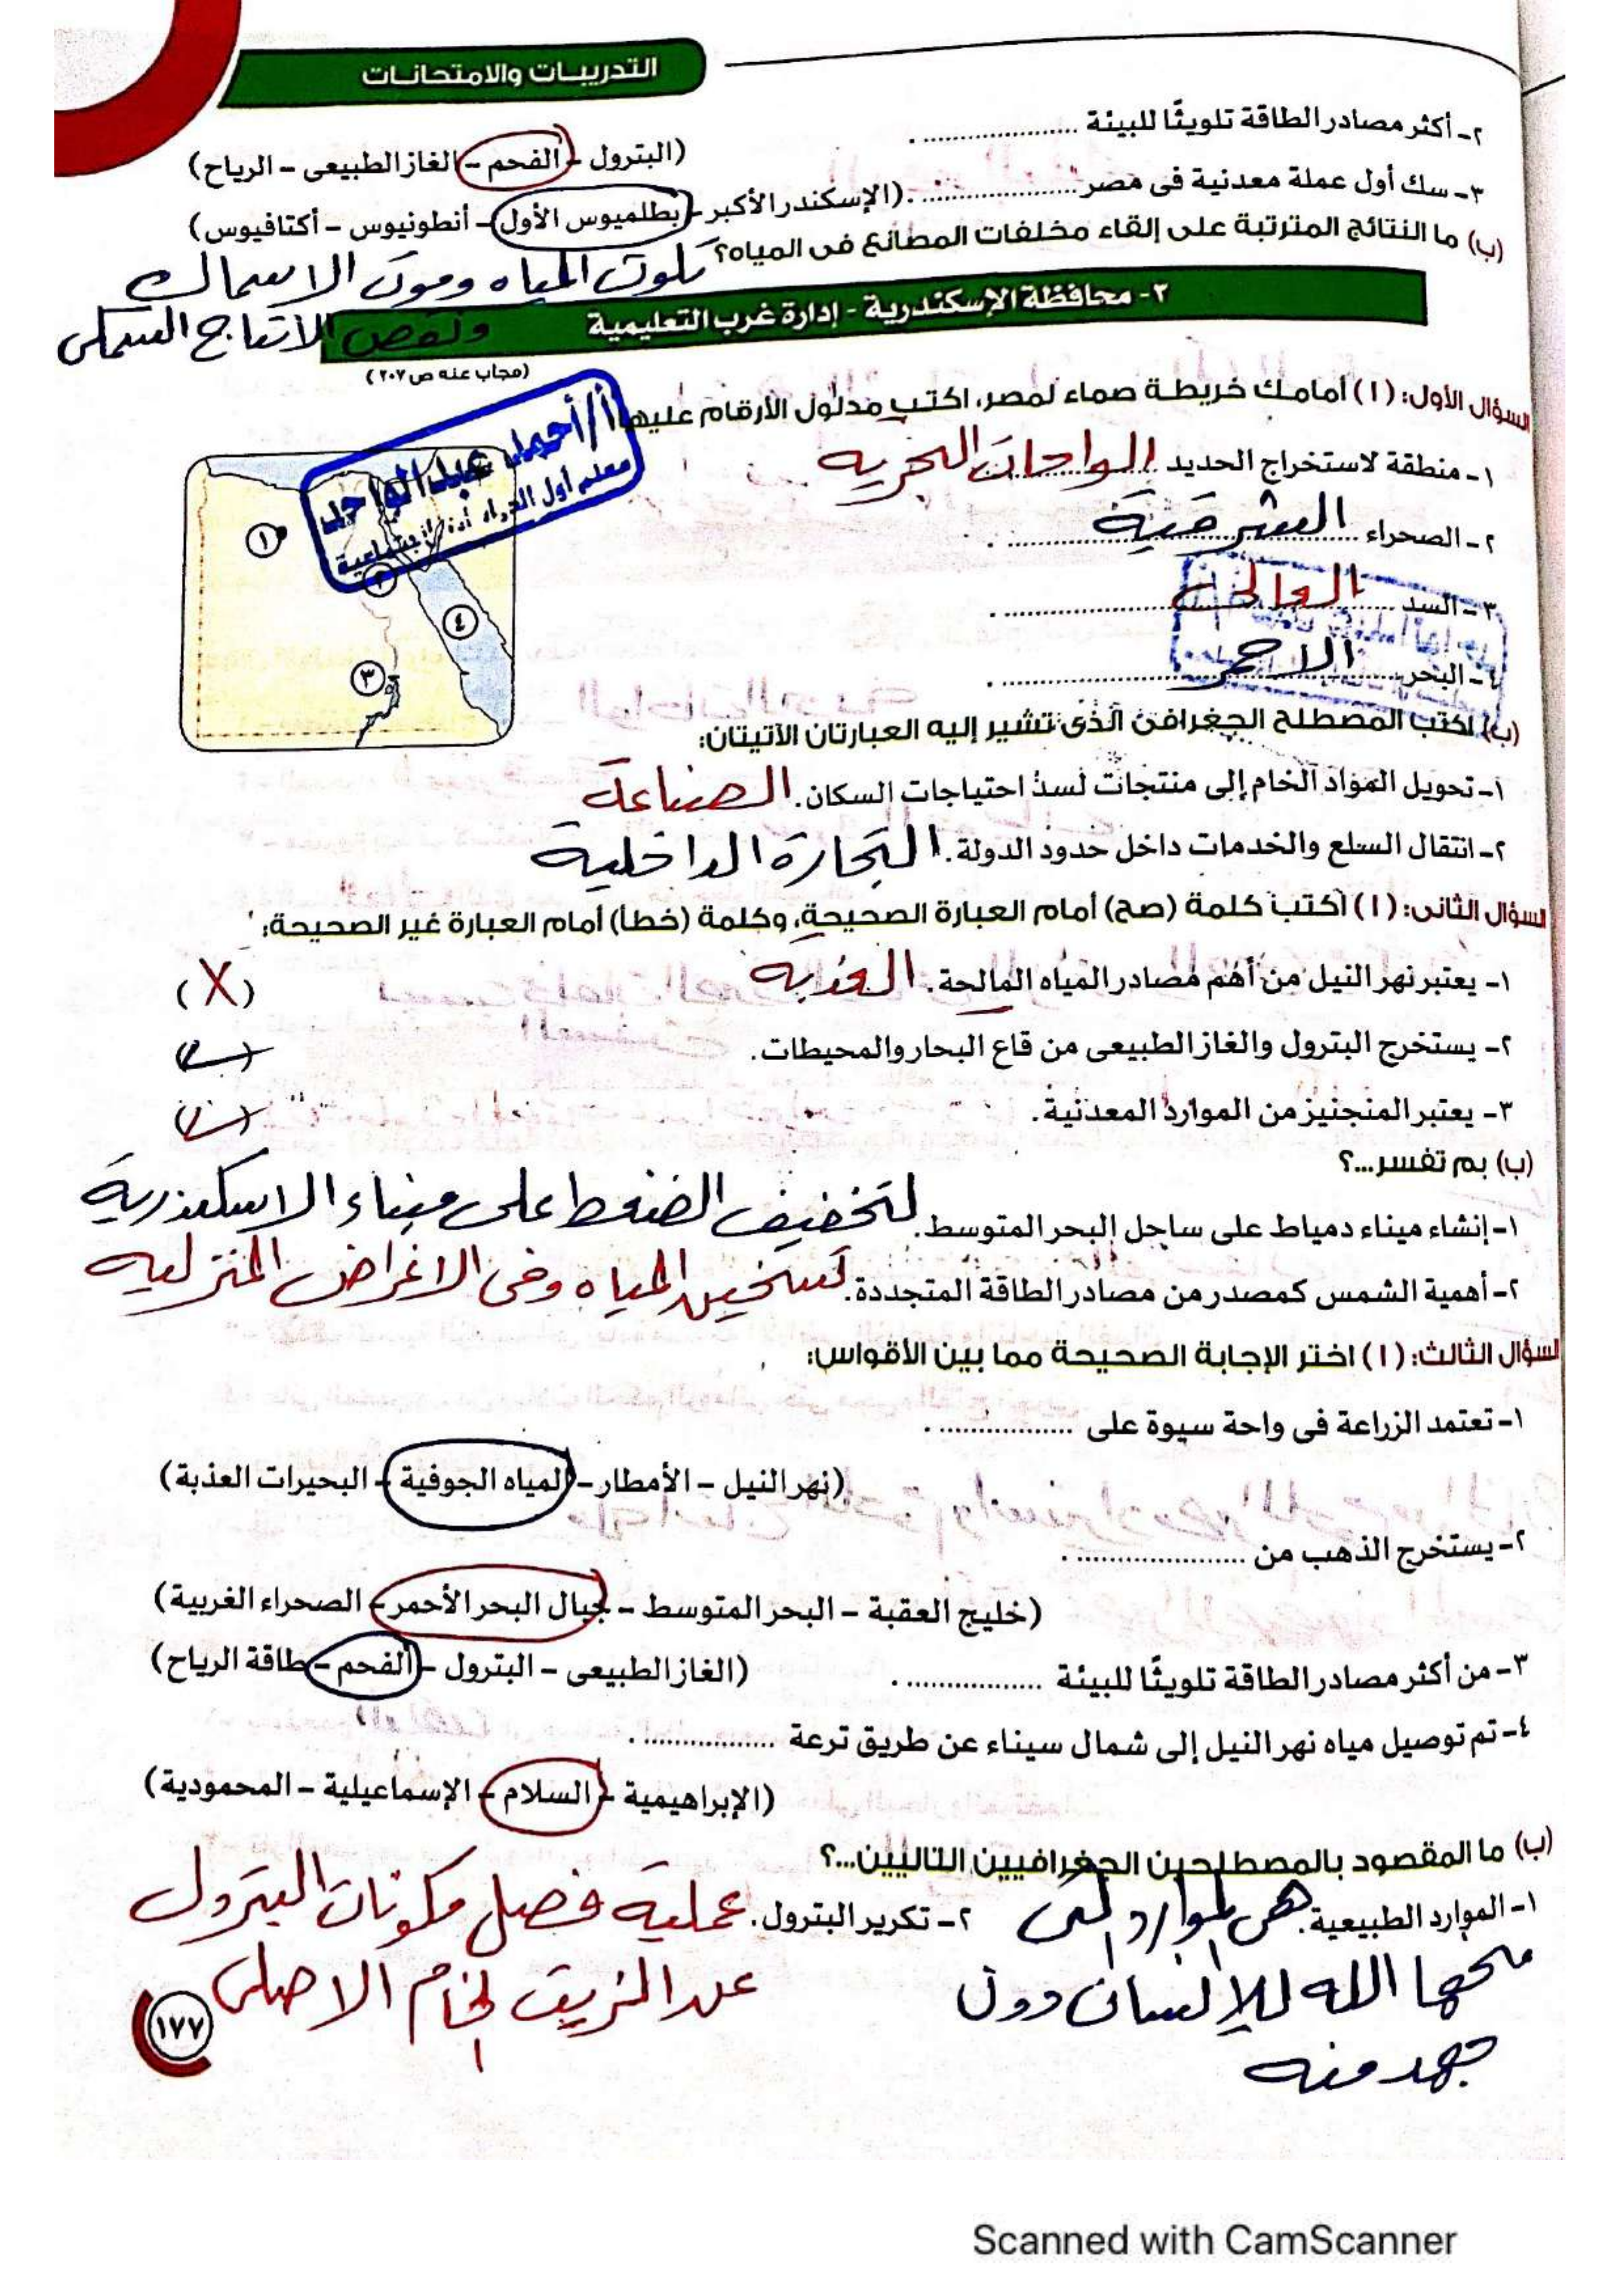 التدريبات والامتحانات
٢- أكثر مصادر الطاقة تلويثًا للبيئة ................. .
(البترول - الفحم - الغاز الطبيعى - الرياح)
٣- سك أول عملة معدنية فى مصر ................. . (الإسكندر الأكبر - بطلميوس الأول - أنطونيوس - أكتافيوس)
(ب) ما النتائج المترتبة على إلقاء مخلفات المصانع فى المياه؟ تلوث المياه وموت الاسماك
ونقص الانتاج السمكى
٢- محافظة الإسكندرية - إدارة غرب التعليمية
(مجاب عنه ص ٢٠٧)
السؤال الأول: (١) أمامك خريطة صماء لمصر، اكتب مدلول الأرقام عليها:
أ/ أحمد عبد الواحد
معلم أول الدراسات الاجتماعية
١- منطقة لاستخراج الحديد الواحات البحرية
٢- الصحراء الشرقية .
٣- السد العالى .
٤- البحر الاحمر .
١
٢
٤
٣
(ب) اكتب المصطلح الجغرافى الذى تشير إليه العبارتان الآتيتان:
١- تحويل المواد الخام إلى منتجات لسد احتياجات السكان. الصناعة
٢- انتقال السلع والخدمات داخل حدود الدولة. التجارة الداخلية
السؤال الثانى: (١) اكتب كلمة (صح) أمام العبارة الصحيحة، وكلمة (خطأ) أمام العبارة غير الصحيحة:
١- يعتبر نهر النيل من أهم مصادر المياه المالحة. العذبه (X)
٢- يستخرج البترول والغاز الطبيعى من قاع البحار والمحيطات. (✓)
٣- يعتبر المنجنيز من الموارد المعدنية. (✓)
(ب) بم تفسر...؟
١- إنشاء ميناء دمياط على ساحل البحر المتوسط. لتخفيف الضغط على ميناء الاسكندرية
٢- أهمية الشمس كمصدر من مصادر الطاقة المتجددة. تسخين المياه وفى الاغراض المنزليه
السؤال الثالث: (١) اختر الإجابة الصحيحة مما بين الأقواس:
١- تعتمد الزراعة فى واحة سيوة على ................. .
(نهر النيل - الأمطار - المياه الجوفية - البحيرات العذبة)
٢- يستخرج الذهب من ..................... .
(خليج العقبة - البحر المتوسط - جبال البحر الأحمر - الصحراء الغربية)
٣- من أكثر مصادر الطاقة تلويثًا للبيئة ................. . (الغاز الطبيعى - البترول - الفحم - طاقة الرياح)
٤- تم توصيل مياه نهر النيل إلى شمال سيناء عن طريق ترعة ................. .
(الإبراهيمية - السلام - الإسماعيلية - المحمودية)
(ب) ما المقصود بالمصطلحين الجغرافيين التاليين...؟
١- الموارد الطبيعية. هى الموارد التى ٢- تكرير البترول. عملية فصل مكونات البترول
منحها الله للإنسان دون عن الزيت الخام الاصلى
جهد منه
١٧٧
Scanned with CamScanner